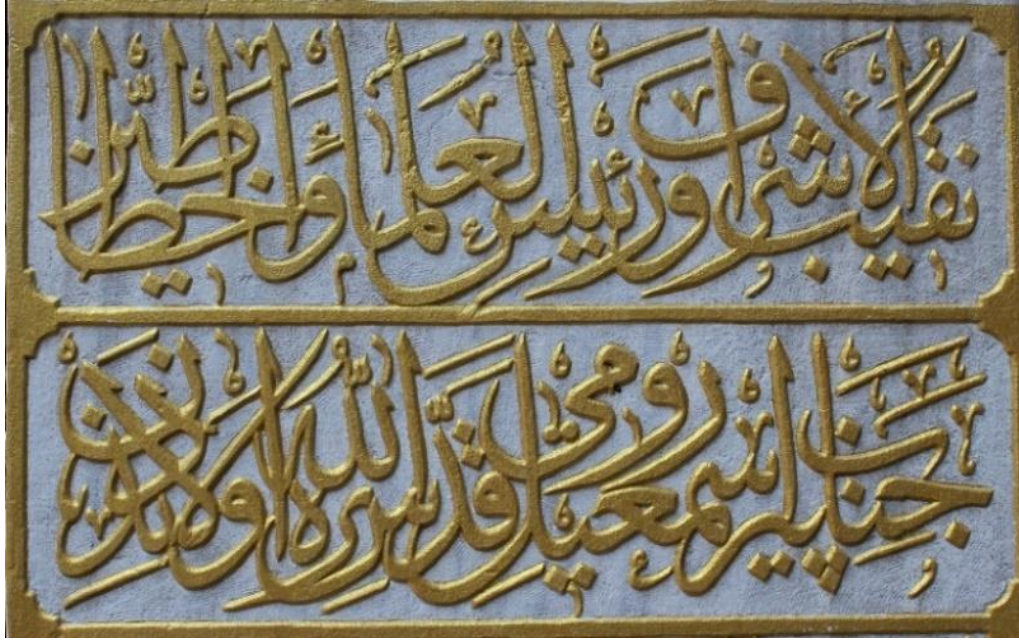 نقيب الاشراف ورئيس العلماء والخطاطين
جناب پير اسمعيل رومي قدس الله سره اولادندن